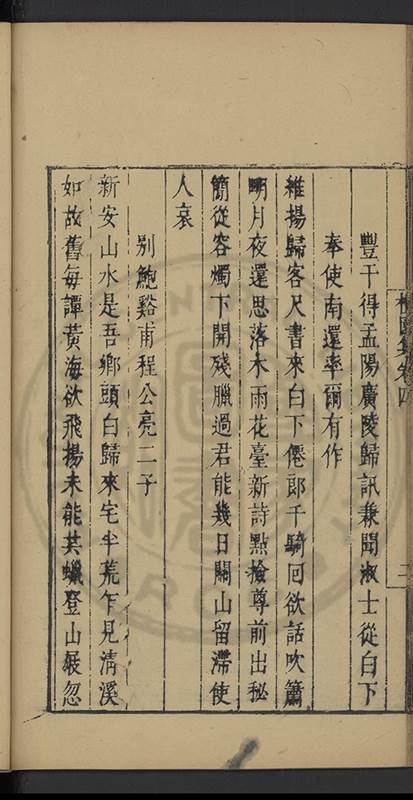 豐干得孟陽廣陵歸訊兼聞淑士從白下
奉使南還率爾有作
維揚歸客尺書來白下僊郎千騎回欲話吹簫
明月夜還思落木雨花臺新詩點撿尊前出秘
簡從容燭下開殘臘過君能幾日關山留滯使
人哀
別鮑谿甫程公亮二子
新安山水是吾鄉頭白歸來宅半荒乍見淸溪
如故舊每譚黃海欲飛揚未能共蠟登山屐忽